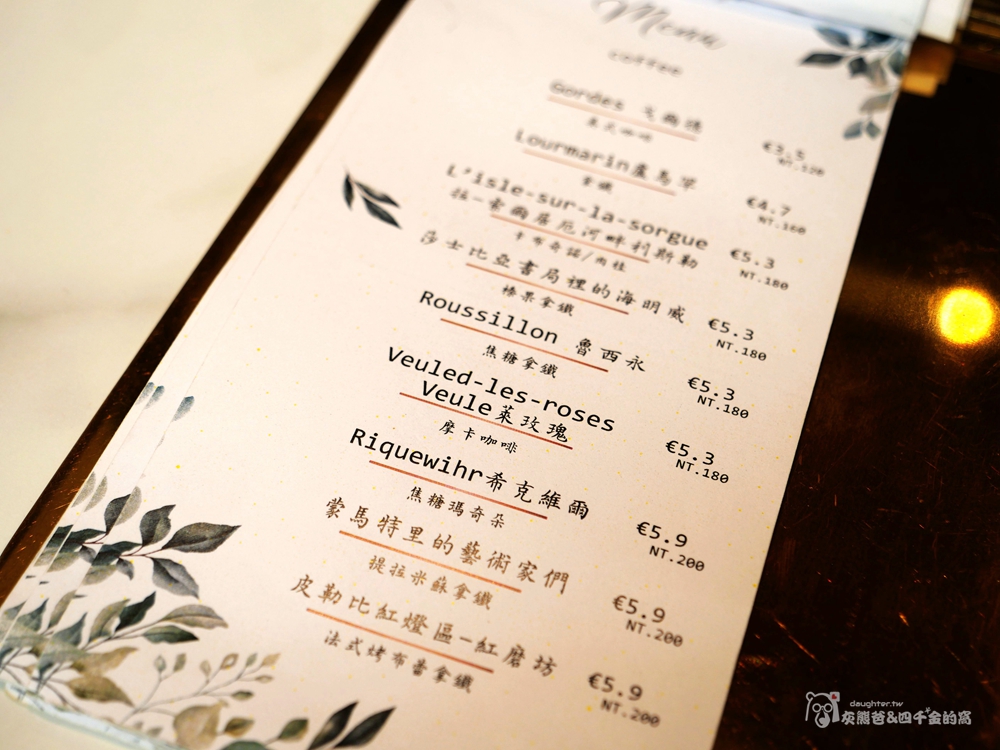 Menu
coffee
Gordes 戈爾德
美式咖啡
€3.5
NT.120
Lourmarin盧馬罕
拿鐵
€4.7
NT.160
L'isle-sur-la-sorgue
拉-索爾居厄河畔利斯勒
卡布奇諾/肉桂
€5.3
NT.180
莎士比亞書局裡的海明威
榛果拿鐵
€5.3
NT.180
Roussillon 魯西永
焦糖拿鐵
€5.3
NT.180
Veuled-les-roses
Veule萊玫瑰
摩卡咖啡
€5.3
NT.180
Riquewihr希克維爾
焦糖瑪奇朵
€5.9
NT.200
蒙馬特里的藝術家們
提拉米蘇拿鐵
€5.9
NT.200
皮勒比紅燈區-紅磨坊
法式烤布蕾拿鐵
€5.9
NT.200
daughter.tw
灰熊爸&四千金的窩